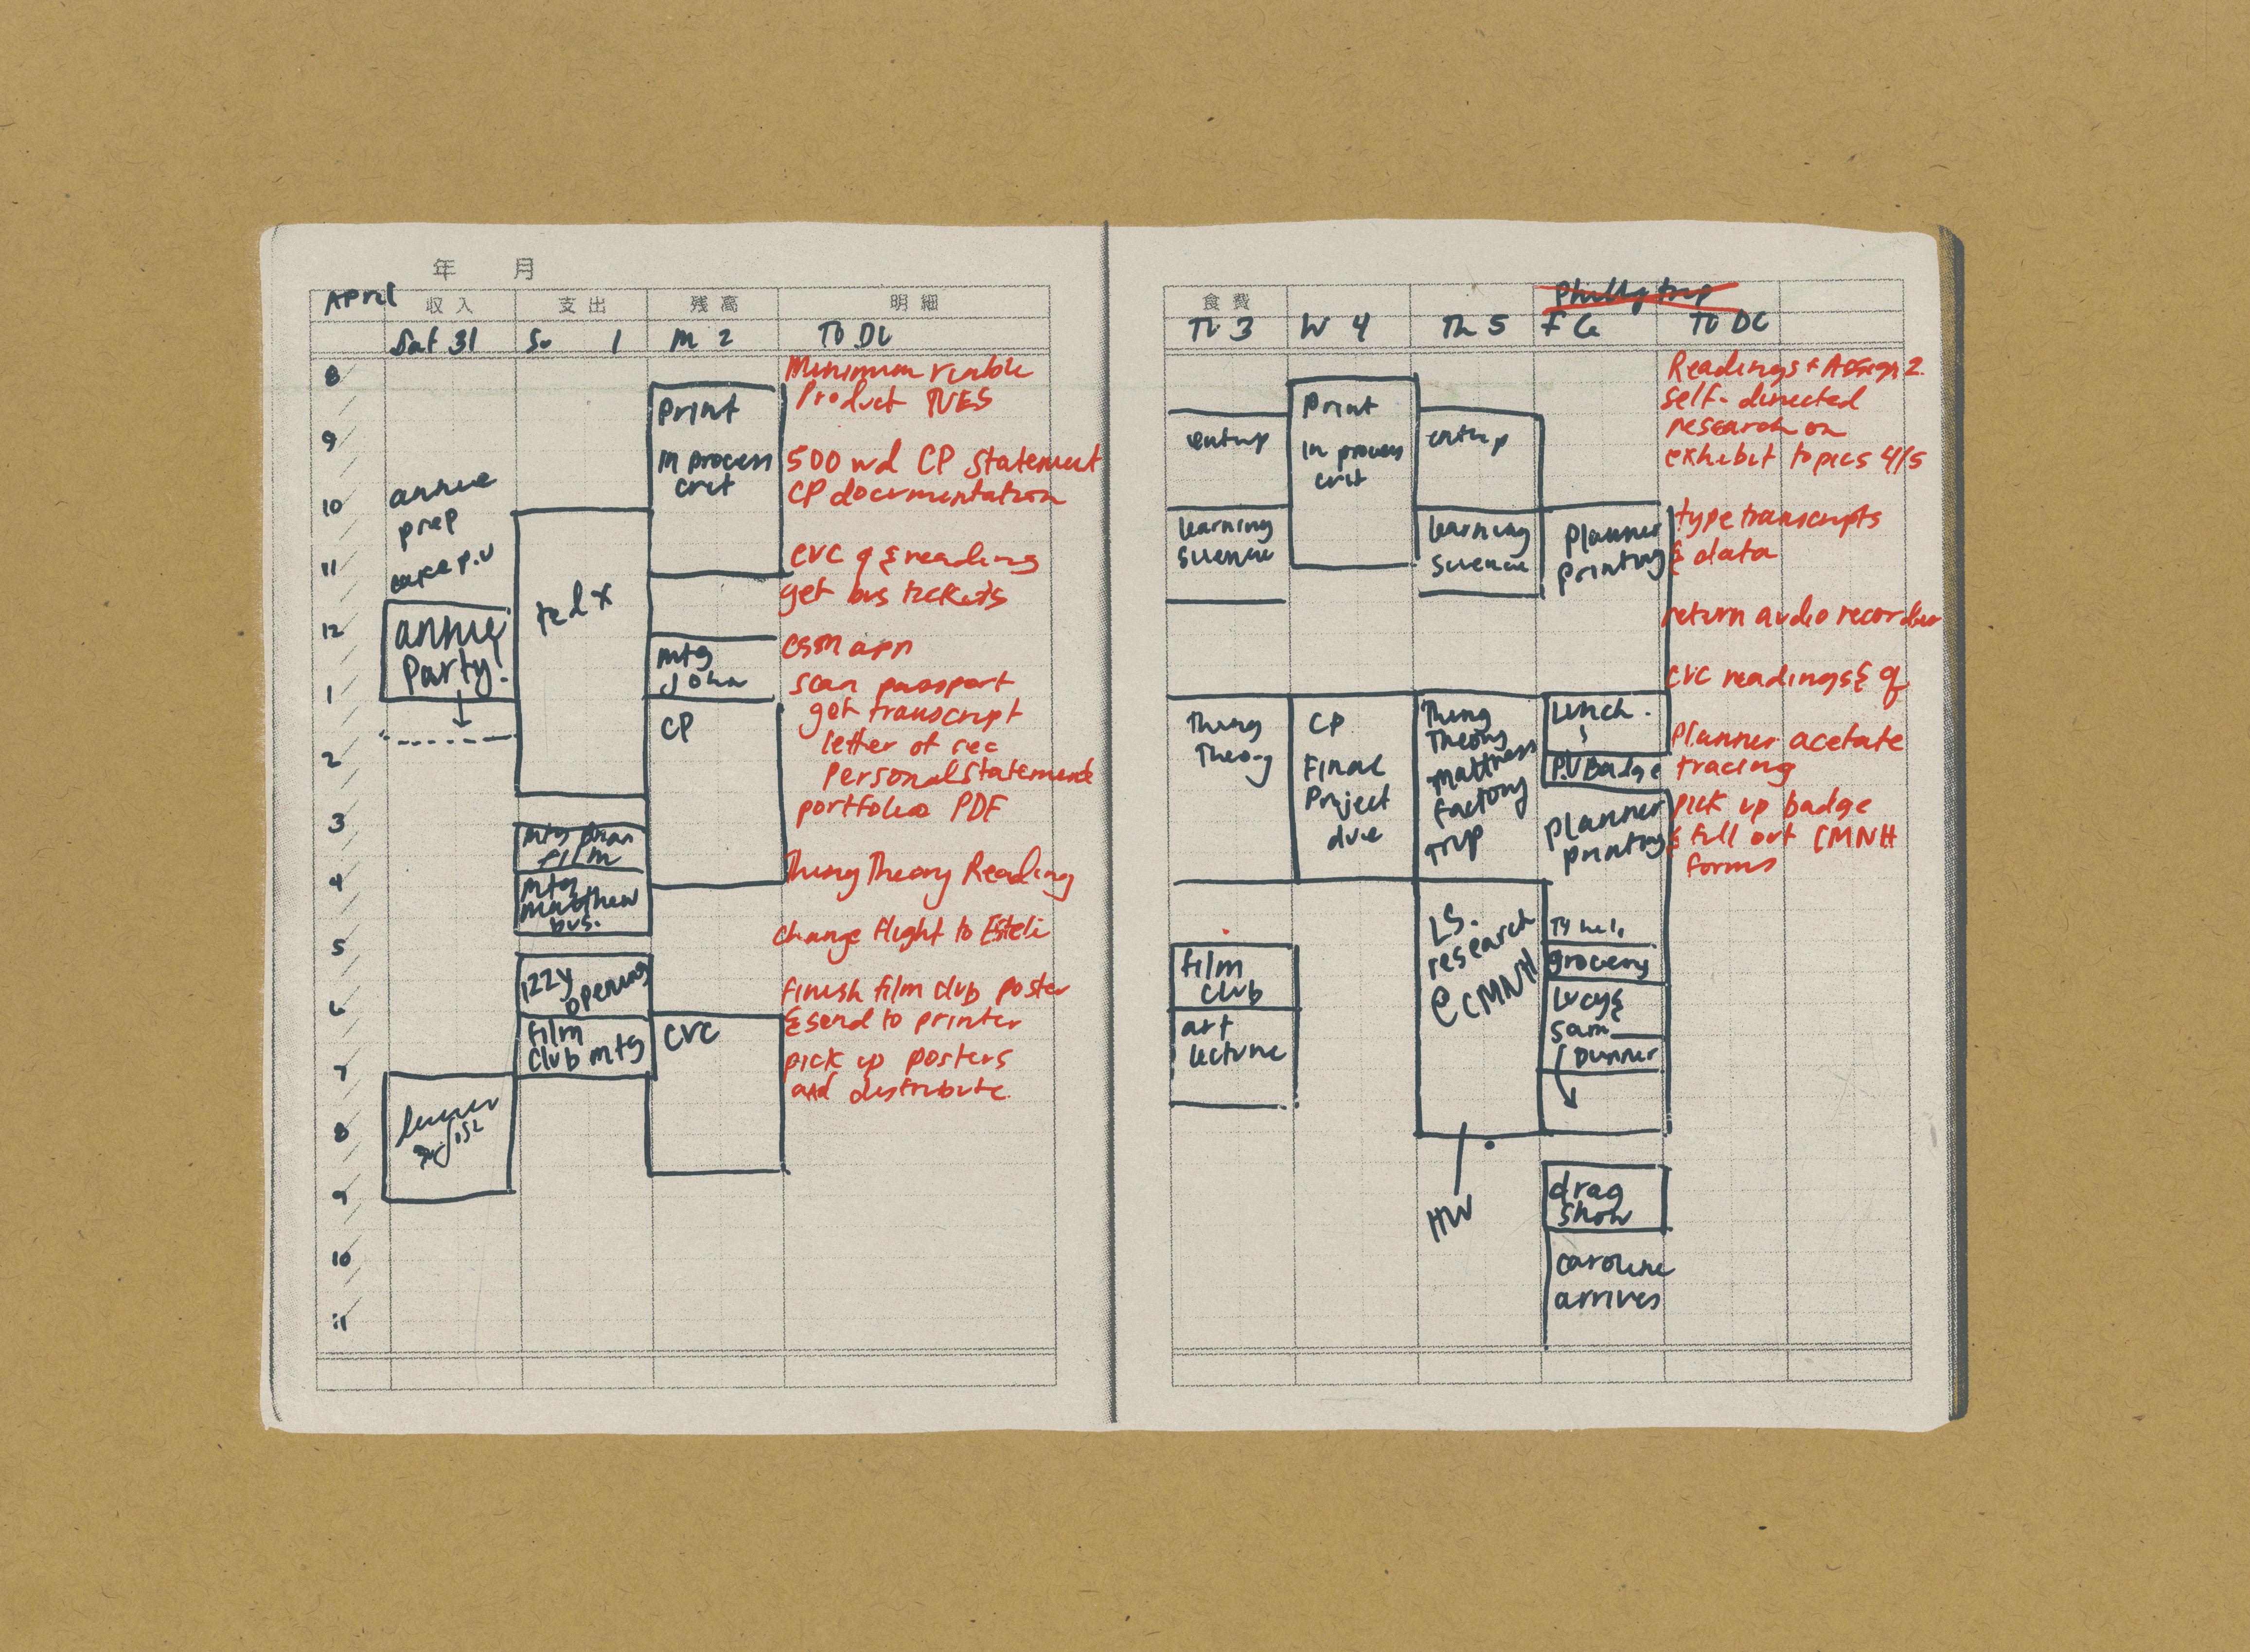 年 月
April 収入 支出 残高 明細
Sat 31 Su 1 M 2 TO DO
8
9
10
11
12
1
2
3
4
5
6
7
8
9
10
11
annie
prep
cake p.u
annie
Party!
ted x
mtg
film
mtg
matthew
bus.
izzy
opening
film
club mtg
Print
in process
crit
mtg
John
CP
CVC
Minimum viable
Product TUES
500 wd CP statement
CP documentation
CVC q & reading
get bus tickets
CSM app
scan passport
get transcript
letter of rec
personal statement
portfolio PDF
Thing Theory Reading
change flight to Esteli
finish film club poster
& send to printer
pick up posters
and distribute
食費
Philly trip
Tu 3 W 4 Th 5 F 6 TO DO
entrep
learning
science
Thing
Theory
film
club
art
lecture
Print
in process
crit
CP
Final
Project
due
entrep
learning
science
Thing
Theory
mattress
factory
trip
LS.
research
@ CMNH
HW
planner
printing
lunch
P.U Badge
planner
printing
grocery
lucy &
sam
dinner
drag
show
caroline
arrives
Readings + Assign 2
self-directed
research on
exhibit topics 4/5
type transcripts
& data
return audio recorder
CVC readings & q
Planner acetate
tracing
pick up badge
& fill out CMNH
forms